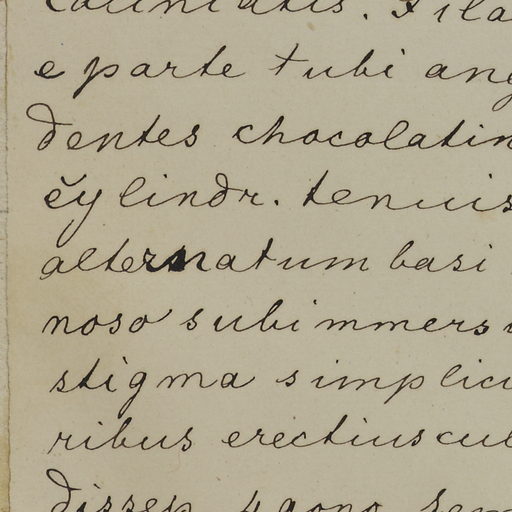 e parte tubi ang
dentes chocolatin
cylindr. tenuis
alternatum basi
noso subimmers
stigma simplici
ribus erectiuscul
dissep. 4gono